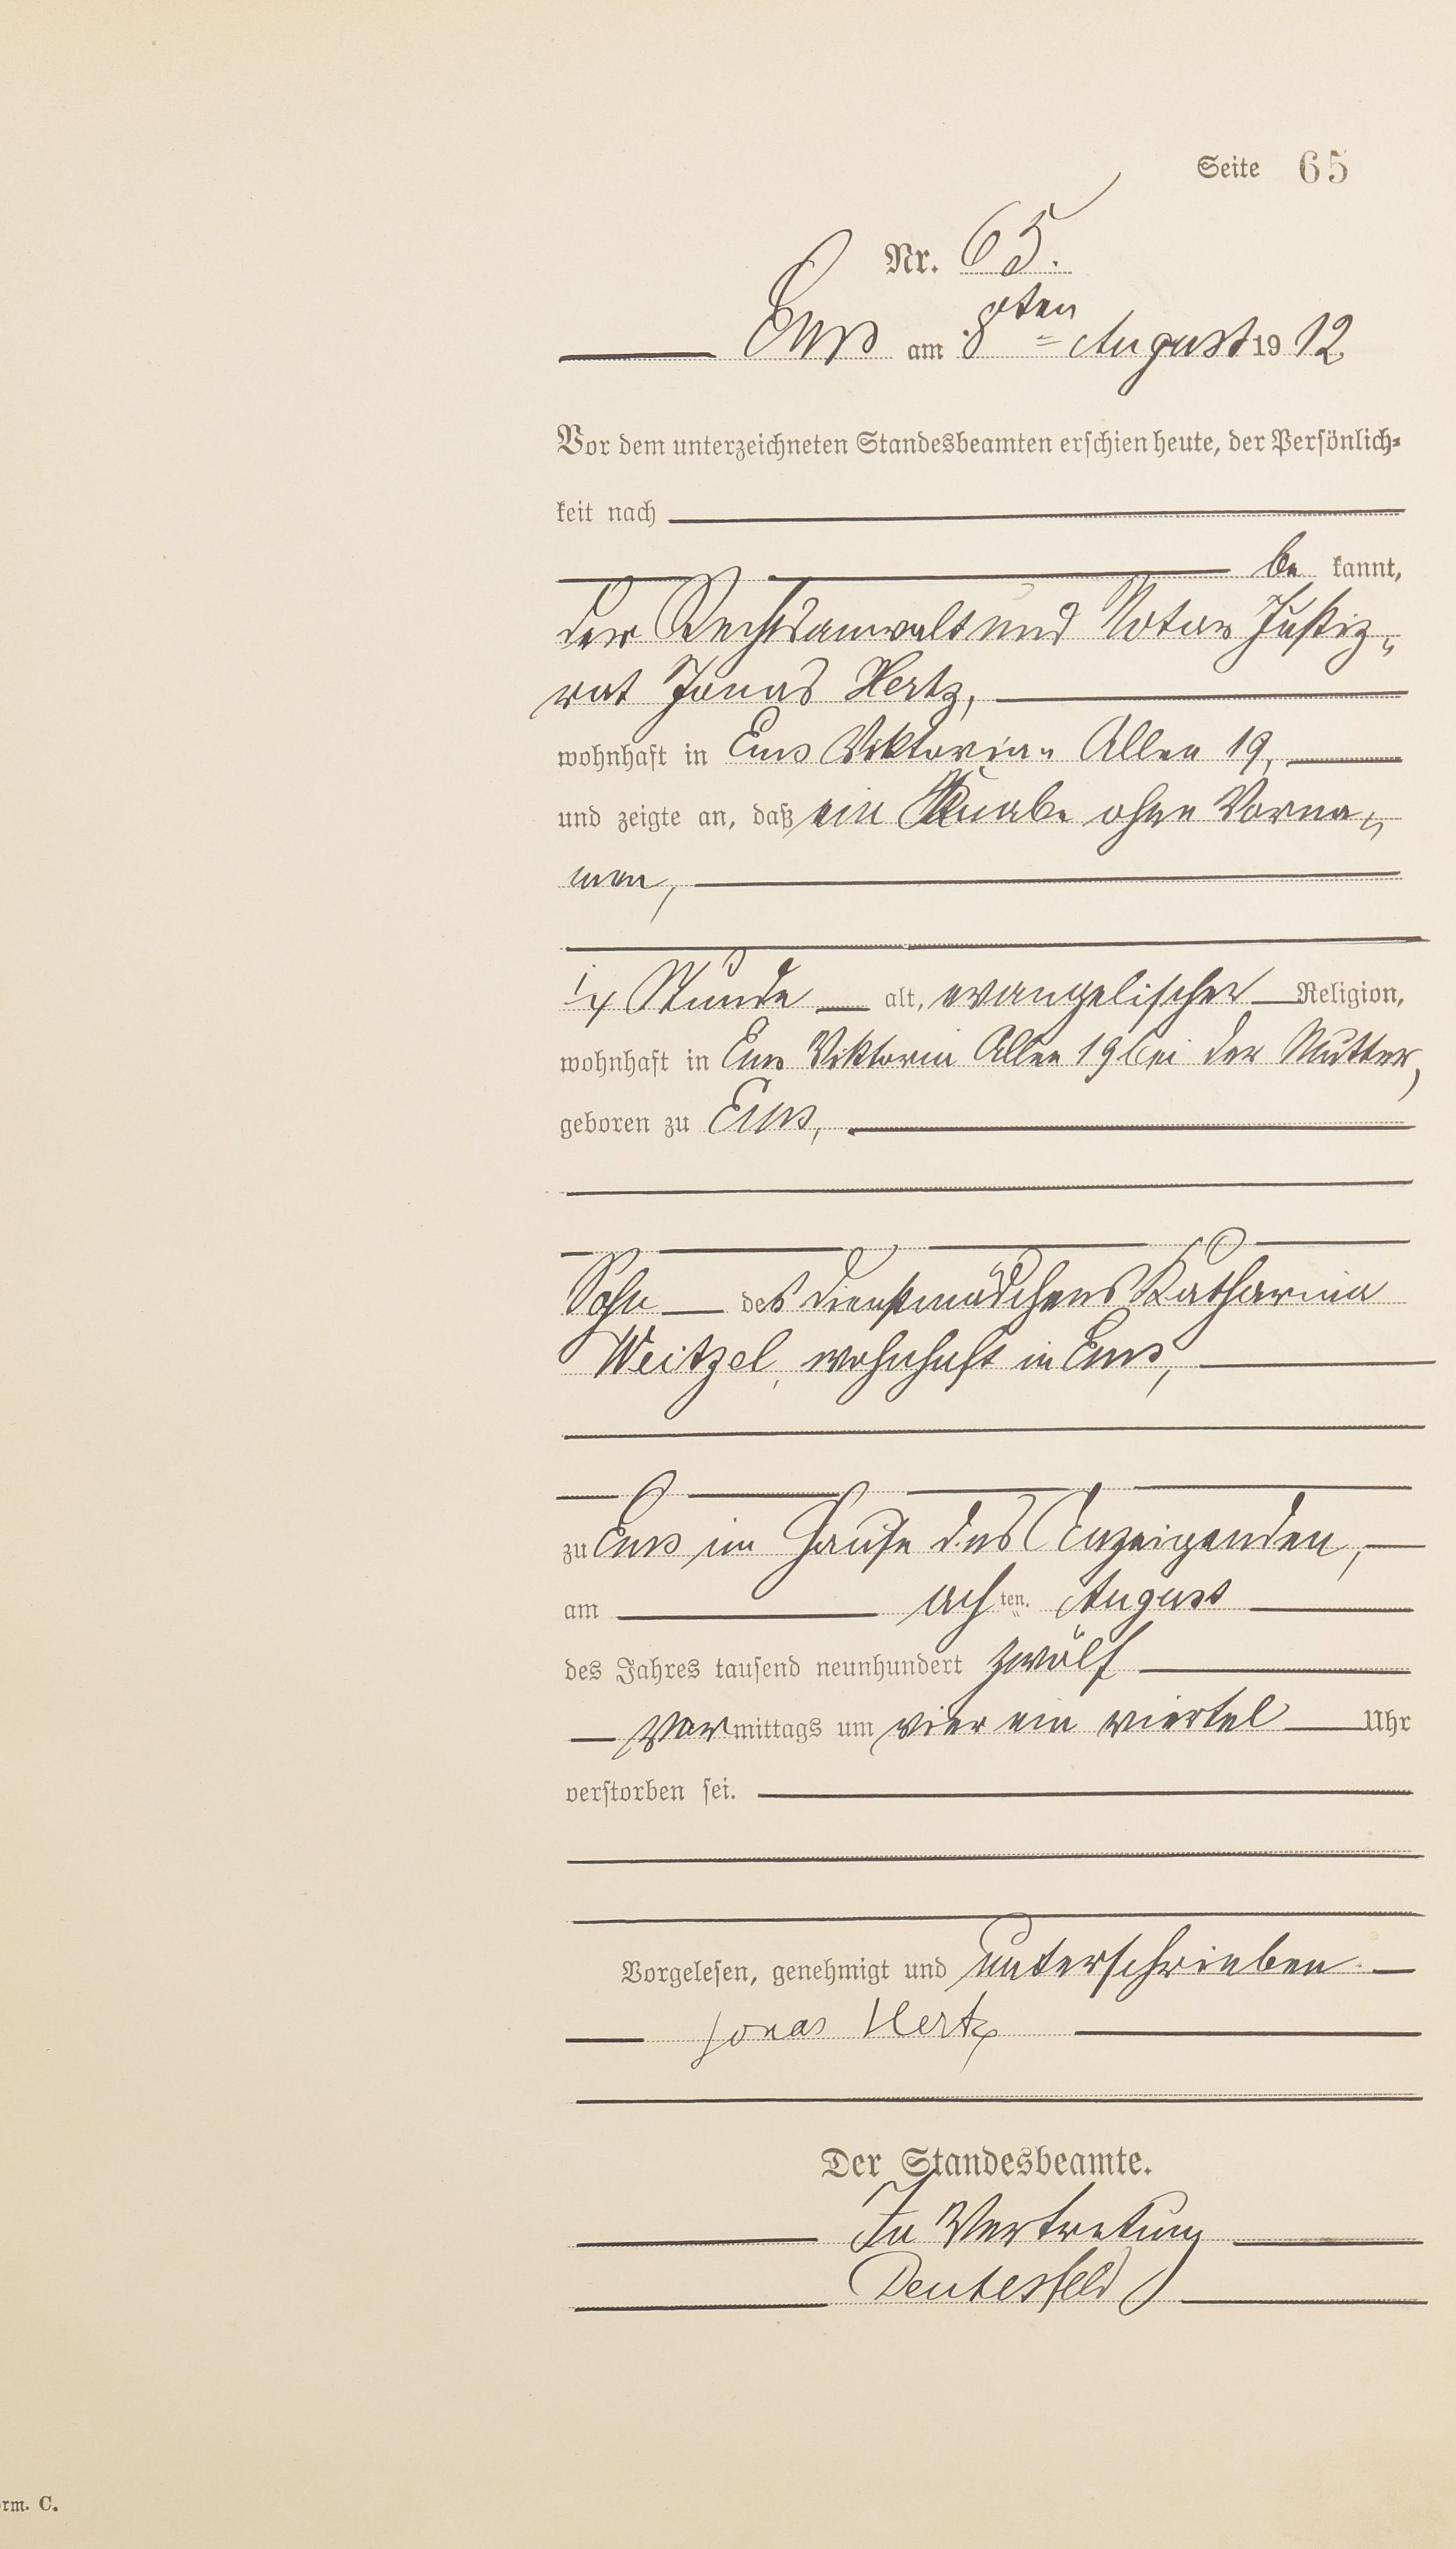 Seite 65
Nr. 65.
Ems am 8ten August 1912
Vor dem unterzeichneten Standesbeamten erschien heute, der Persönlich-
keit nach
be kannt,
der Rechtsanwalt und Notar Justiz-
rat Jonas Hertz,
wohnhaft in Ems Viktoria- Allee 19,
und zeigte an, daß ein Knabe ohne Vorna-
men,
1/4 Stunde alt, evangelischer Religion,
wohnhaft in Ems Viktoria Allee 19 bei der Mutter,
geboren zu Ems,
Sohn des Dienstmädchens Katharina
Weitzel, wohnhaft in Ems,
zu Ems im Hause des Anzeigenden,
am achten August
des Jahres tausend neunhundert zwölf
Vormittags um vier ein viertel Uhr
verstorben sei.
Vorgelesen, genehmigt und unterschrieben.
Jonas Hertz
Der Standesbeamte.
In Vertretung
Deutesfeld
orm. C.